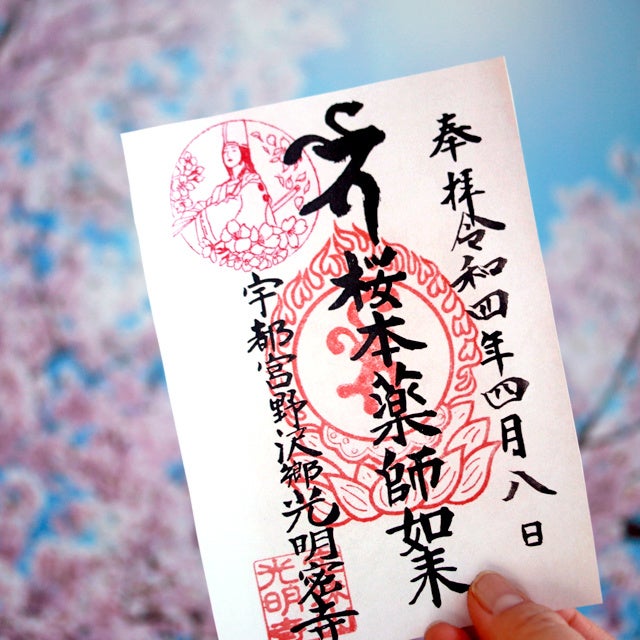 奉拝令和四年四月八日
桜本薬師如来
宇都宮野沢郷光明密寺
光明